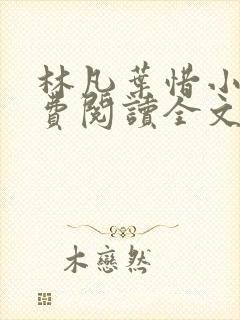 林凡葉惜小
費閱讀全文
木戀然